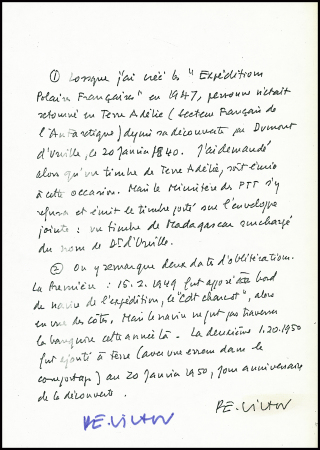 ① Lorsque j'ai créé les "Expéditions
Polaires Françaises" en 1947, personne n'était
retourné en Terre Adélie (secteur Français de
l'Antarctique) depuis sa découverte par Dumont
d'Urville, le 20 Janvier 1840. J'ai demandé
alors qu'un timbre de Terre Adélie, soit émis
à cette occasion. Mais le Ministère des PTT s'y
refusa et émit le timbre porté sur l'enveloppe
jointe : un timbre de Madagascar surchargé
du nom de Dt d'Urville.
② On y remarque deux dates d'oblitération.
La Première : 15.2.1949 fut apposée à bord
du navire de l'expédition, le "Cdt Charcot", alors
en vue des côtes. Mais le navire ne put pas traverser
la banquise cette année là. La deuxième 1.20.1950
fut ajouté à terre (avec une erreur dans le
compostage) au 20 Janvier 1950, jour anniversaire
de la découverte.
P.E. Victor
P.E. Victor